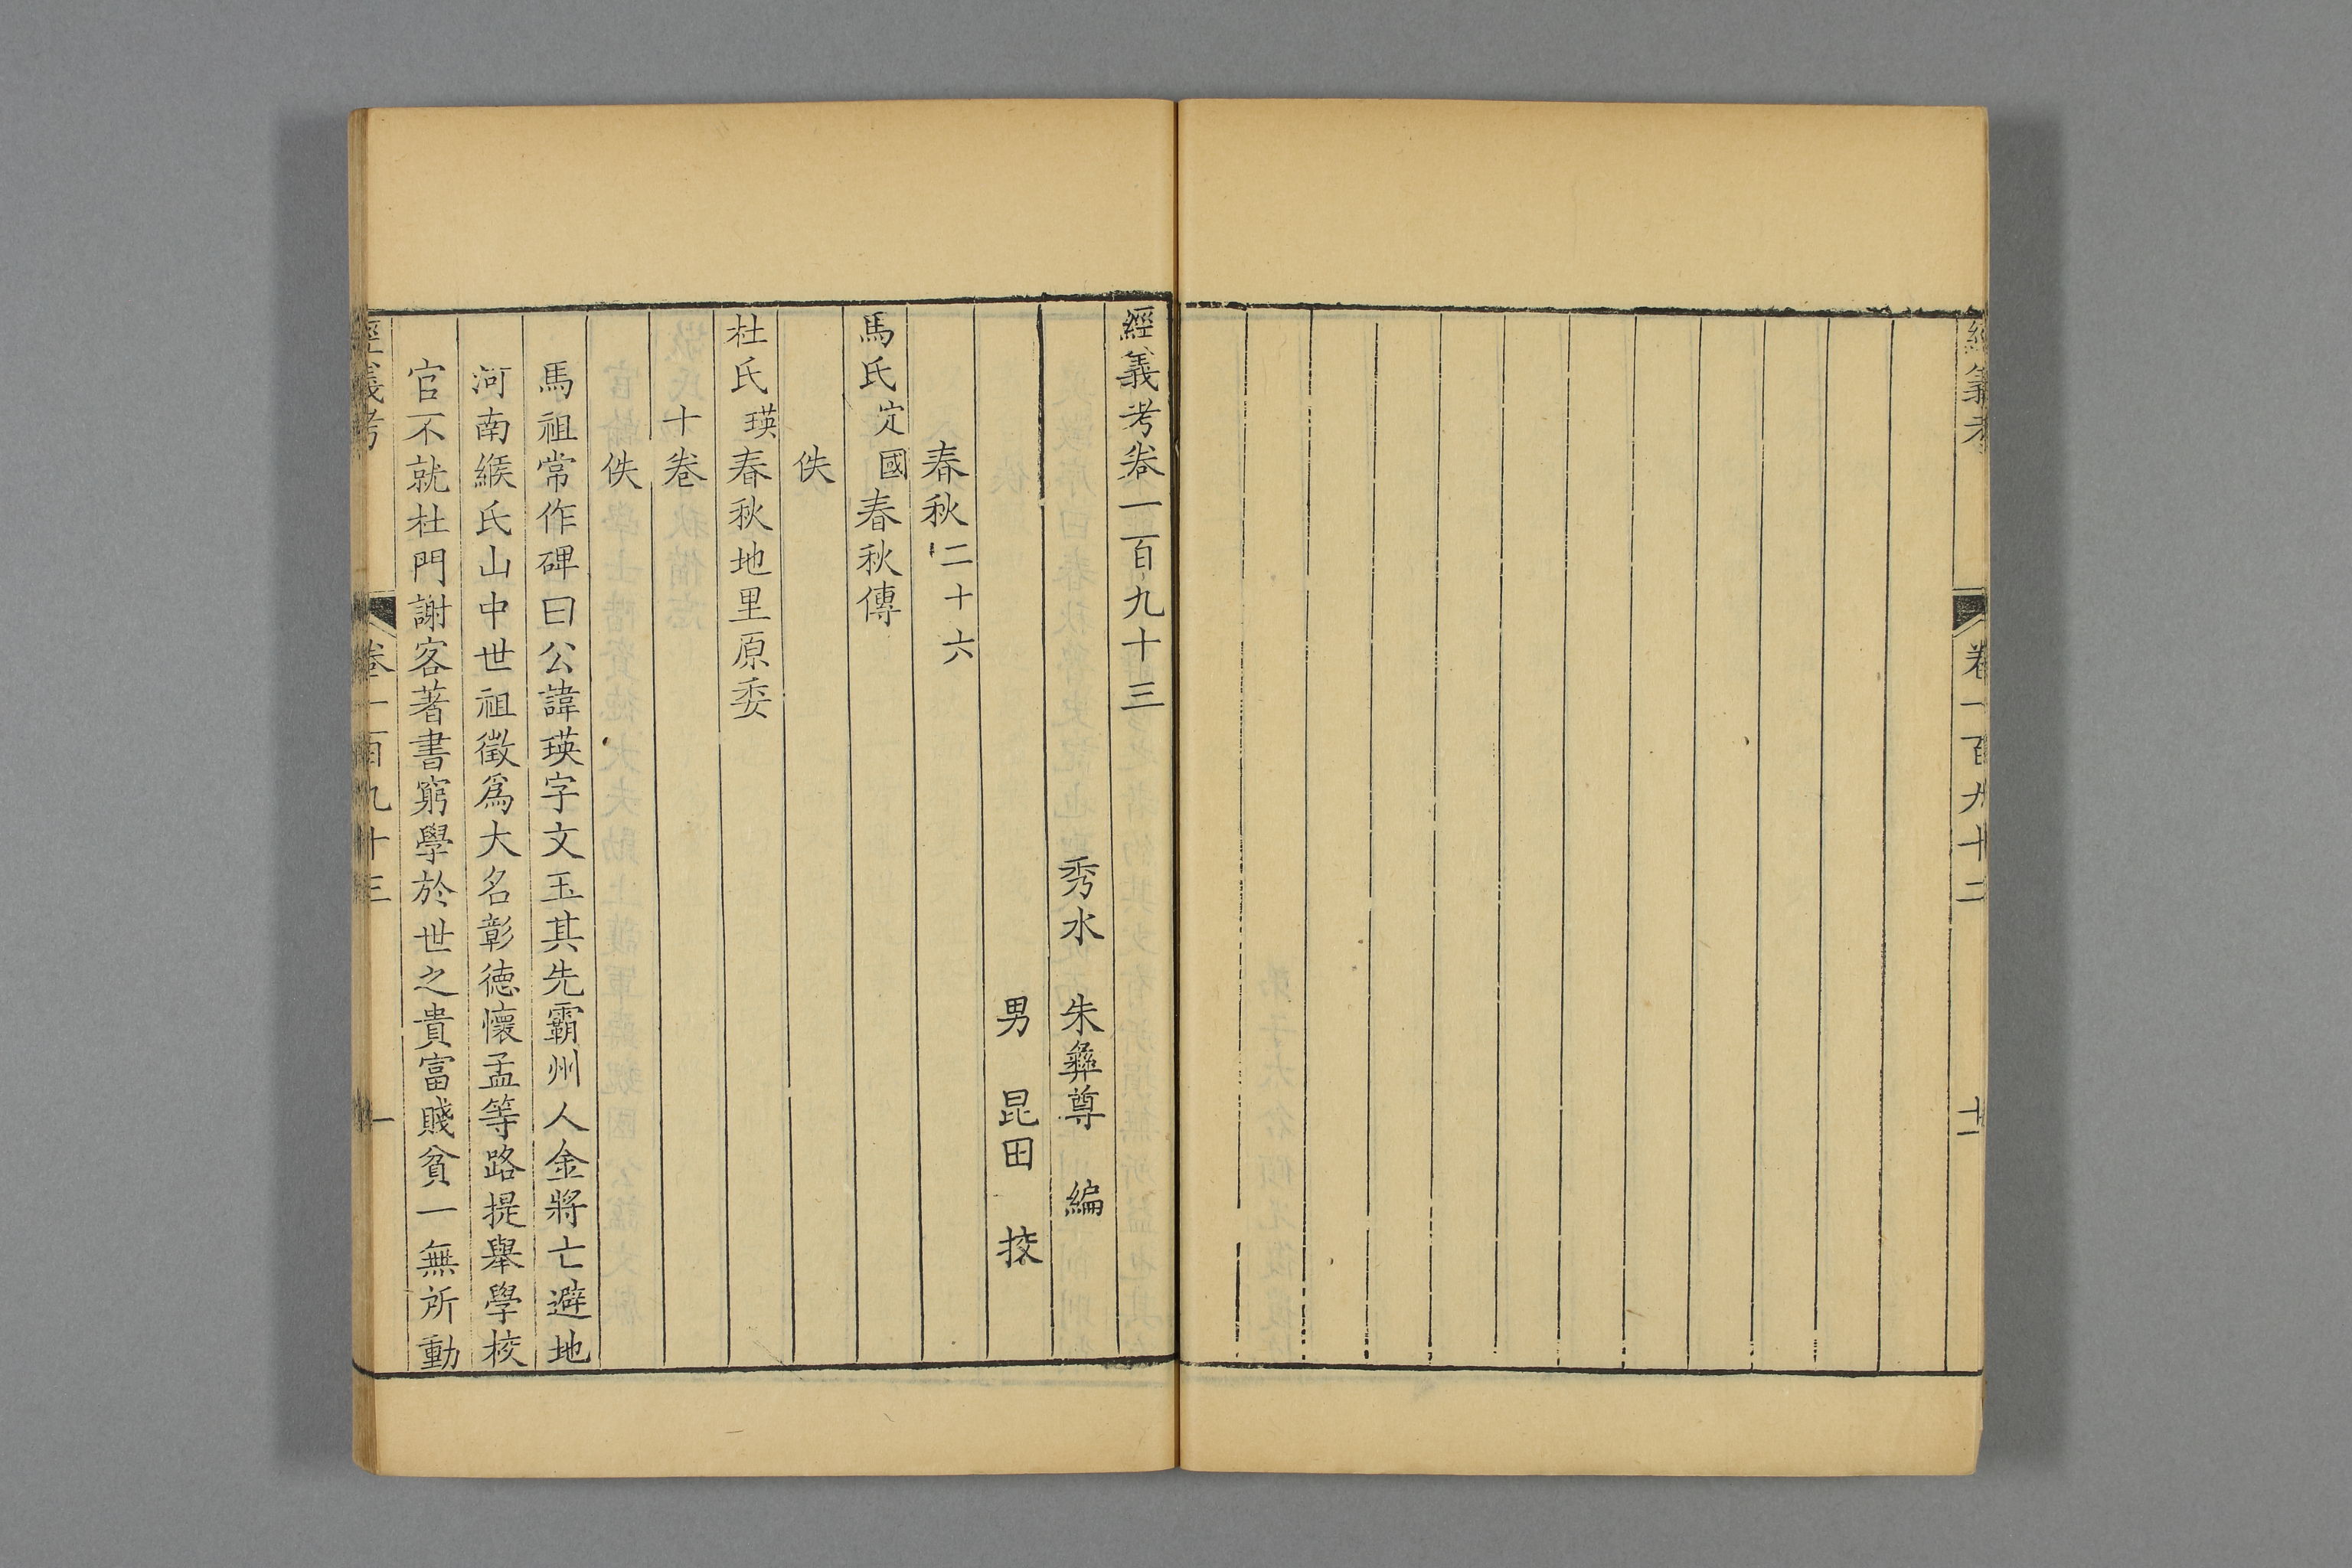 經義考
卷一百九十二
十一
經義考卷一百九十三
秀水 朱彝尊 編
男 昆田 挍
春秋二十六
馬氏定國春秋傳
佚
杜氏瑛春秋地里原委
十卷
佚
馬祖常作碑曰公諱瑛字文玉其先霸州人金將亡避地
河南緱氏山中世祖徵爲大名彰德懷孟等路提舉學校
官不就杜門謝客著書窮學於世之貴富賤貧一無所動
經義考
卷一百九十三
一